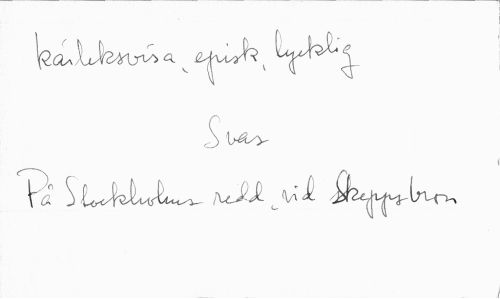 kärleksvisa, episk, lycklig
Svar
På Stockholms redd, vid Skeppsbron